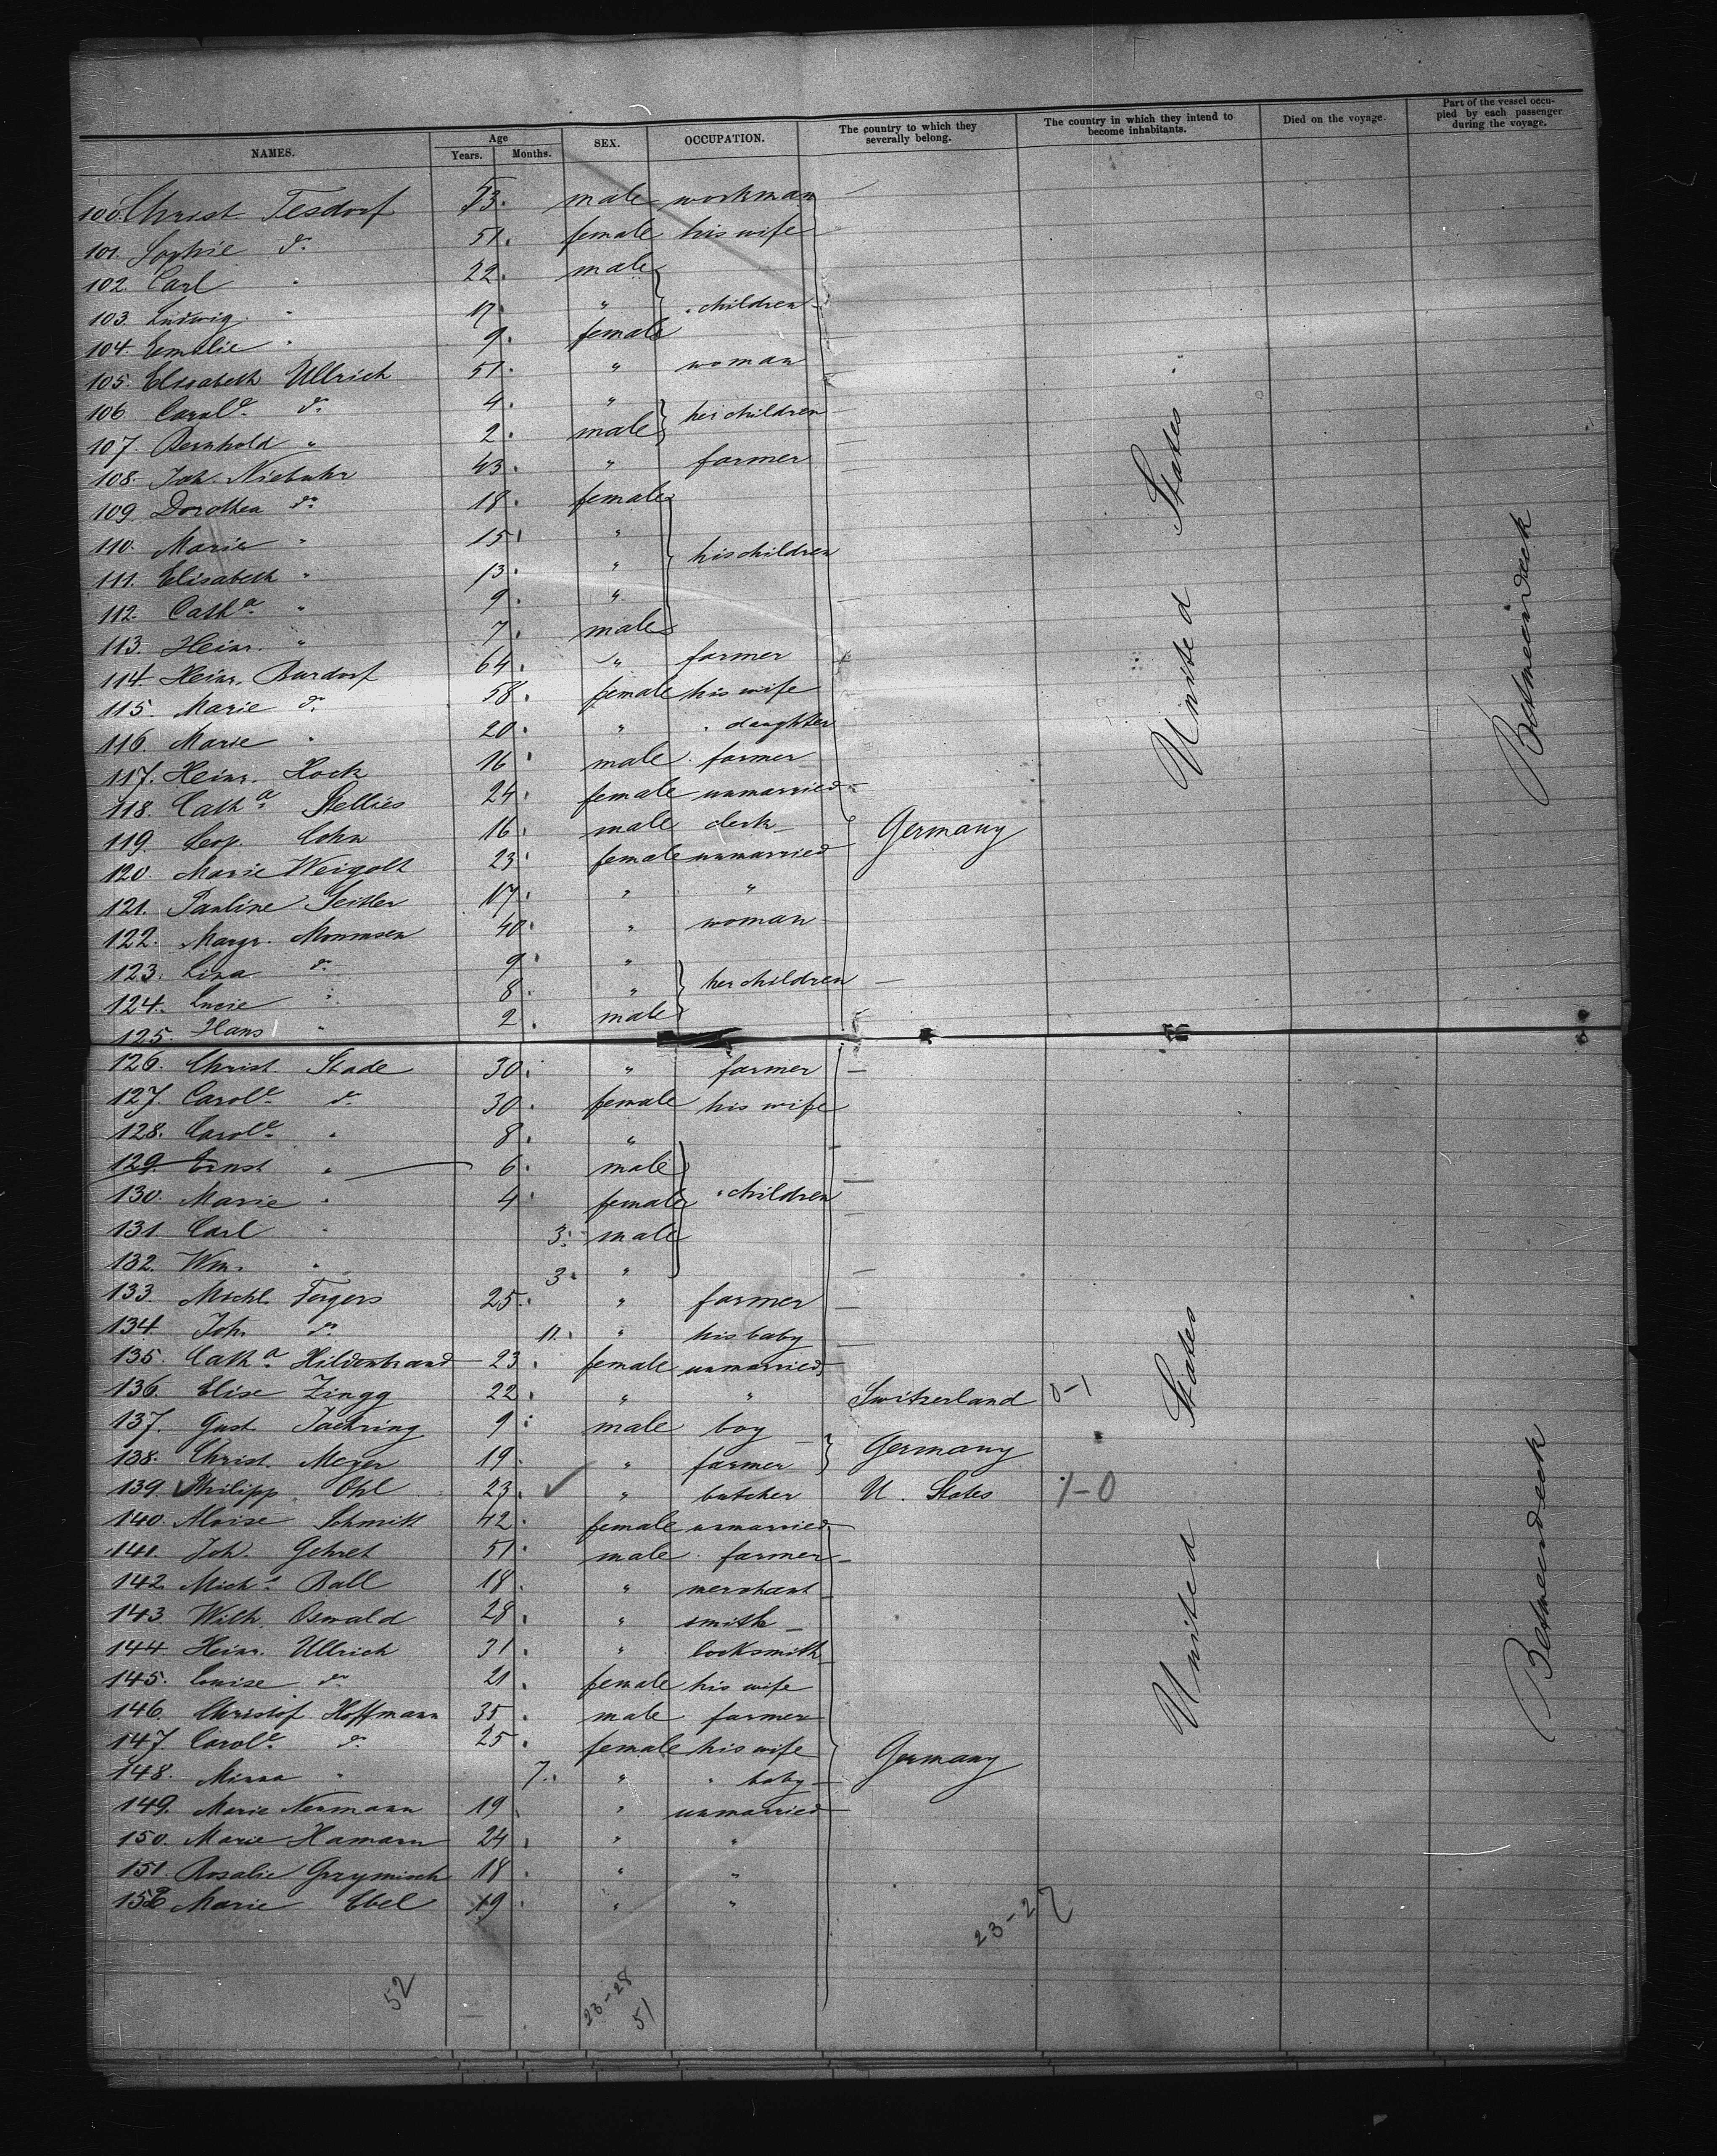 NAMES. Age Years. Months. SEX. OCCUPATION. The country to which they severally belong. The country in which they intend to become inhabitants. Died on the voyage. Part of the vessel occupied by each passenger during the voyage.
100. Christ Tesdorf 53. male workman
101. Sophie do. 51. female his wife
102. Carl " 22. male
103. Ludwig " 17. " " children
104. Emilie " 9. female
105. Elisabeth Ullrich 51. " woman
106. Carole. do. 4. " her children
107. Bernhold " 2. male
108. Joh. Niebuhr 43. " farmer
109. Dorothea do. 18. female
110. Marie " 15. " his children
111. Elisabeth " 13. "
112. Catha. " 9. "
113. Heinr. " 7. male
114. Heinr. Burdorf 64. " farmer
115. Marie do. 58. female his wife
116. Marie " 20. " " daughter
117. Heinr. Hock 16. male farmer
118. Catha. Stellies 24. female unmarried
119. Leop. Cohn 16. male clerk Germany
120. Marie Weigolt 23. female unmarried
121. Pauline Seitler 17. " "
122. Margr. Mommsen 40. " woman
123. Lina do. 9. "
124. Lucie " 8. " her children
125. Hans " 2. male
United States
Betweendeck
126. Christ. Stade 30. " farmer
127. Carole. do. 30. female his wife
128. Carole. " 8. "
129. Ernst " 6. male
130. Marie " 4. female " children
131. Carl " 3. male
132. Wm. " 3. "
133. Michl. Forgers 25. " farmer
134. Joh. do. 11. " his baby
135. Catha. Hildenbrand 23. female unmarried
136. Elise Zingg 22. " " Switzerland 0-1
137. Gust. Jaehring 9. male boy
138. Christ. Meyer 19. " farmer Germany
139. Philipp Ohl 23. " butcher U. States 1-0
140. Aloise Schmitt 42. female unmarried
141. Joh. Gehret 51. male farmer
142. Michl. Ball 18. " merchant
143. Wilh. Oswald 28. " smith
144. Heinr. Ullrich 31. " locksmith
145. Louise do. 21. female his wife
146. Christof Hoffmann 35. male farmer
147. Carole. do. 25. female his wife Germany
148. Minna " 7. " " baby
149. Marie Neumann 19. " unmarried
150. Marie Hamann 24. " "
151. Rosalie Grzymisch 18. " "
152 Marie Ebel 19. " "
United States
Betweendeck
23-27
52
23-28
51